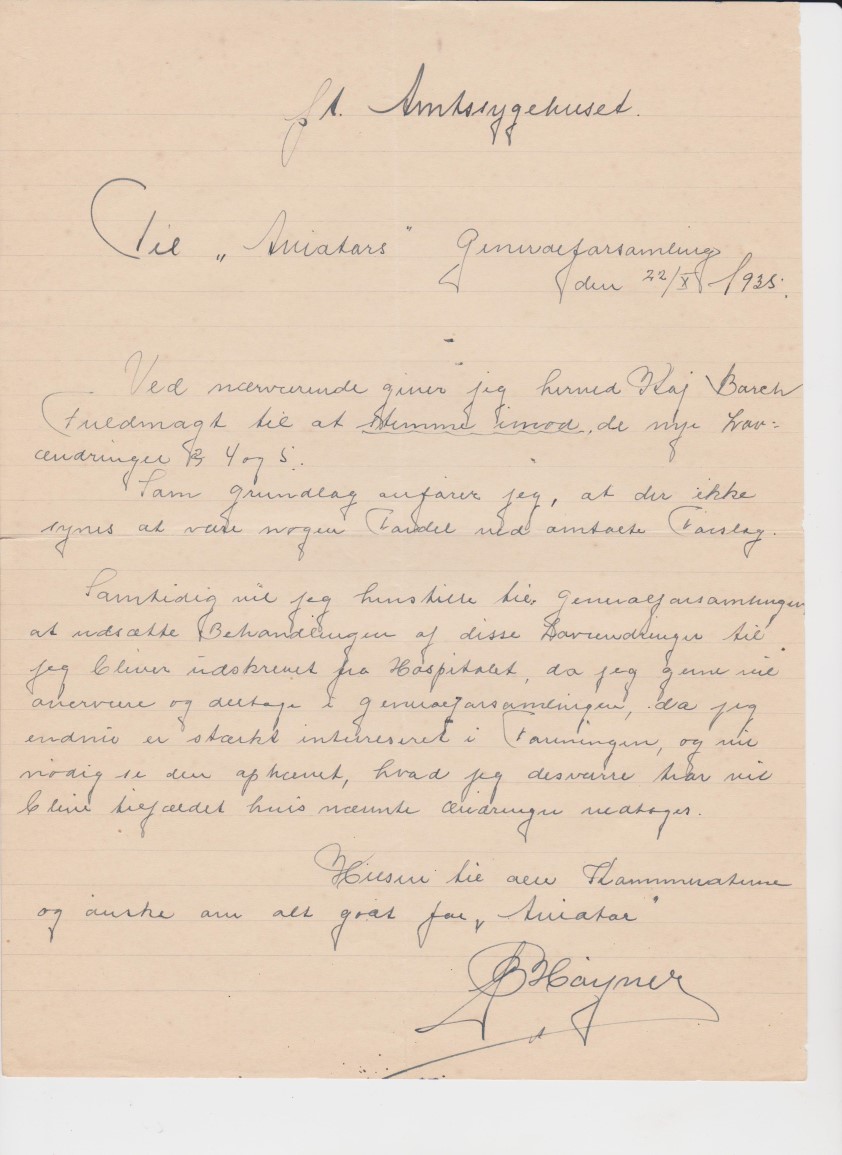 pt. Amtssygehuset.
Til „Aviators" Generalforsamling
den 22/X 1935.
Ved nærværende giver jeg herved Kaj Barch
Fuldmagt til at stemme imod, de nye Lov=
ændringer § 4 og 5.
Som grundlag anfører jeg, at der ikke
synes at være nogen Fordel ved omtalte Forslag.
Samtidig vil jeg henstille til Generalforsamlingen,
at udsætte Behandlingen af disse Lovændringer til
jeg bliver udskrevet fra Hospitalet, da jeg gerne vil
overvære og deltage i generalforsamlingen, da jeg
endnu er stærkt interesseret i Foreningen, og vil
nødig se den ophævet, hvad jeg desværre tror vil
blive tilfældet hvis nævnte ændringer vedtages.
Hilsen til alle Kammeraterne
og ønske om alt godt for „Aviator"
Høyner